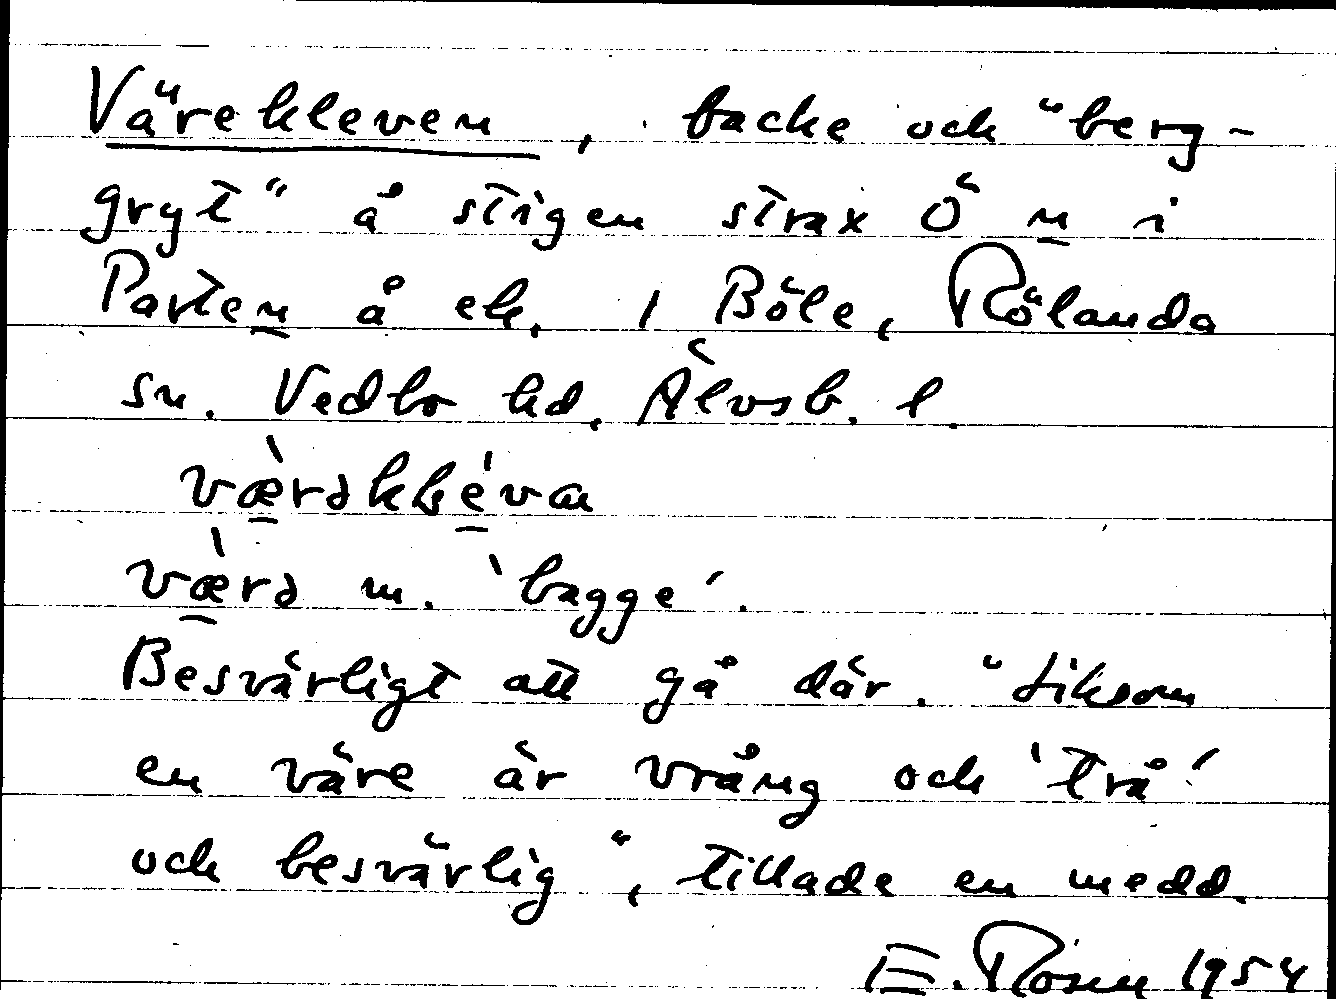 Värekleven, backe och "berg-
gryt" å stigen strax Ö n i
Parten å ek. 1 Böle, Rölanda
sn. Vedbo hd, Älvsb. l.
væ̀rə
væ̀rə m. 'bagge'.
Besvärligt att gå där. "Liksom
en väre är vrång och 'trå'
och besvärlig", tillade en medd.
E. Rosen 1954